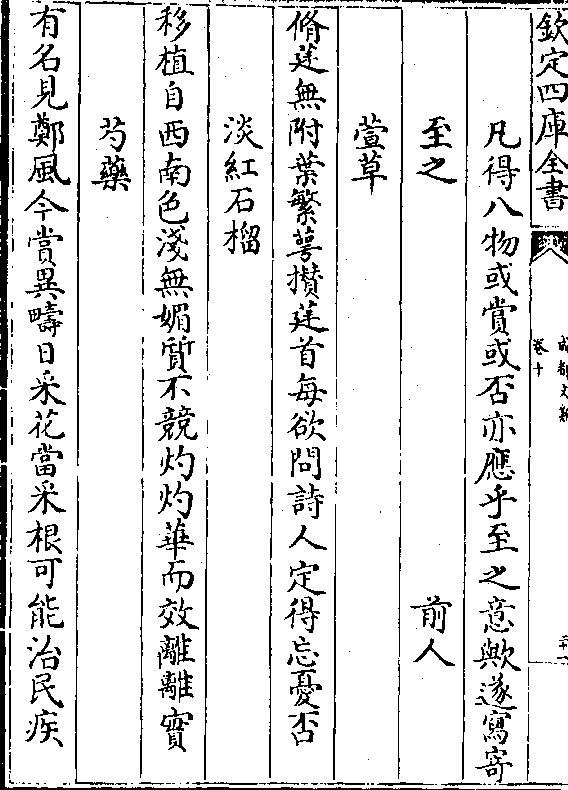 欽定四庫全書
成都文類
卷十
凡得八物或賞或否亦應乎至之意歟遂寫寄
至之　前人
萱草
脩莛無附葉繁萼攢莛首每欲問詩人定得忘憂否
淡紅石榴
移植自西南色淺無媚質不競灼灼華而效離離實
芍藥
有名見鄭風今賞異疇日采花當采根可能治民疾